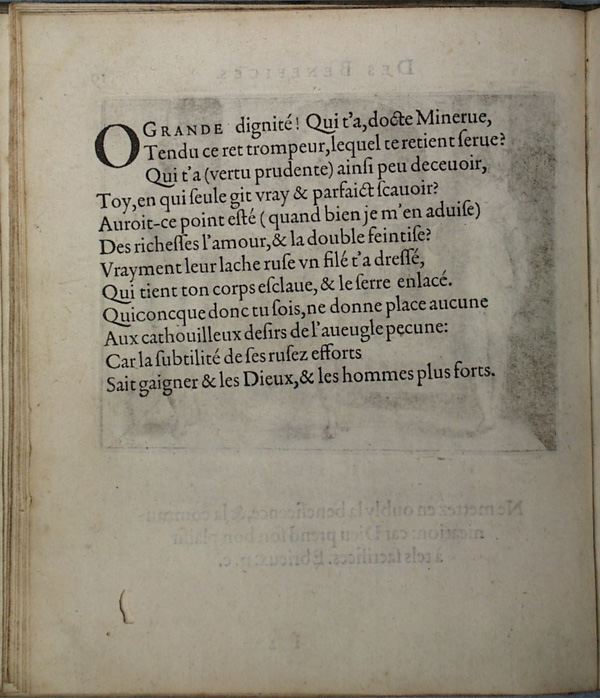 O GRANDE dignité! Qui t'a, docte Minerue,
Tendu ce ret trompeur, lequel te retient ſerue?
Qui t'a (vertu prudente) ainſi peu deceuoir,
Toy, en qui ſeule git vray & parfaict ſcauoir?
Auroit-ce point eſté (quand bien je m'en aduiſe)
Des richeſſes l'amour, & la double feintiſe?
Vrayment leur lache ruſe vn filé t'a dreſſé,
Qui tient ton corps eſclaue, & le ſerre enlacé.
Quiconcque donc tu ſois, ne donne place aucune
Aux cathouilleux deſirs de l'aueugle pecune:
Car la ſubtilité de ſes ruſez efforts
Sait gaigner & les Dieux, & les hommes plus forts.